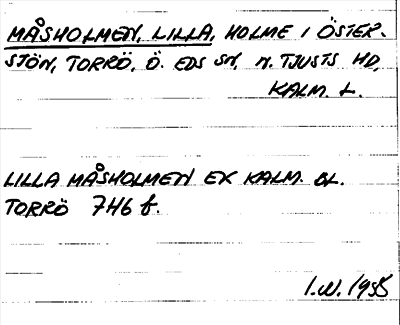 MÅSHOLMEN, LILLA, HOLME I ÖSTER-
SJÖN, TORRÖ, Ö. EDS SN, N. TJUSTS HD,
KALM. L.
LILLA MÅSHOLMEN EK KALM. BL.
TORRÖ 746 f.
I.W. 1955